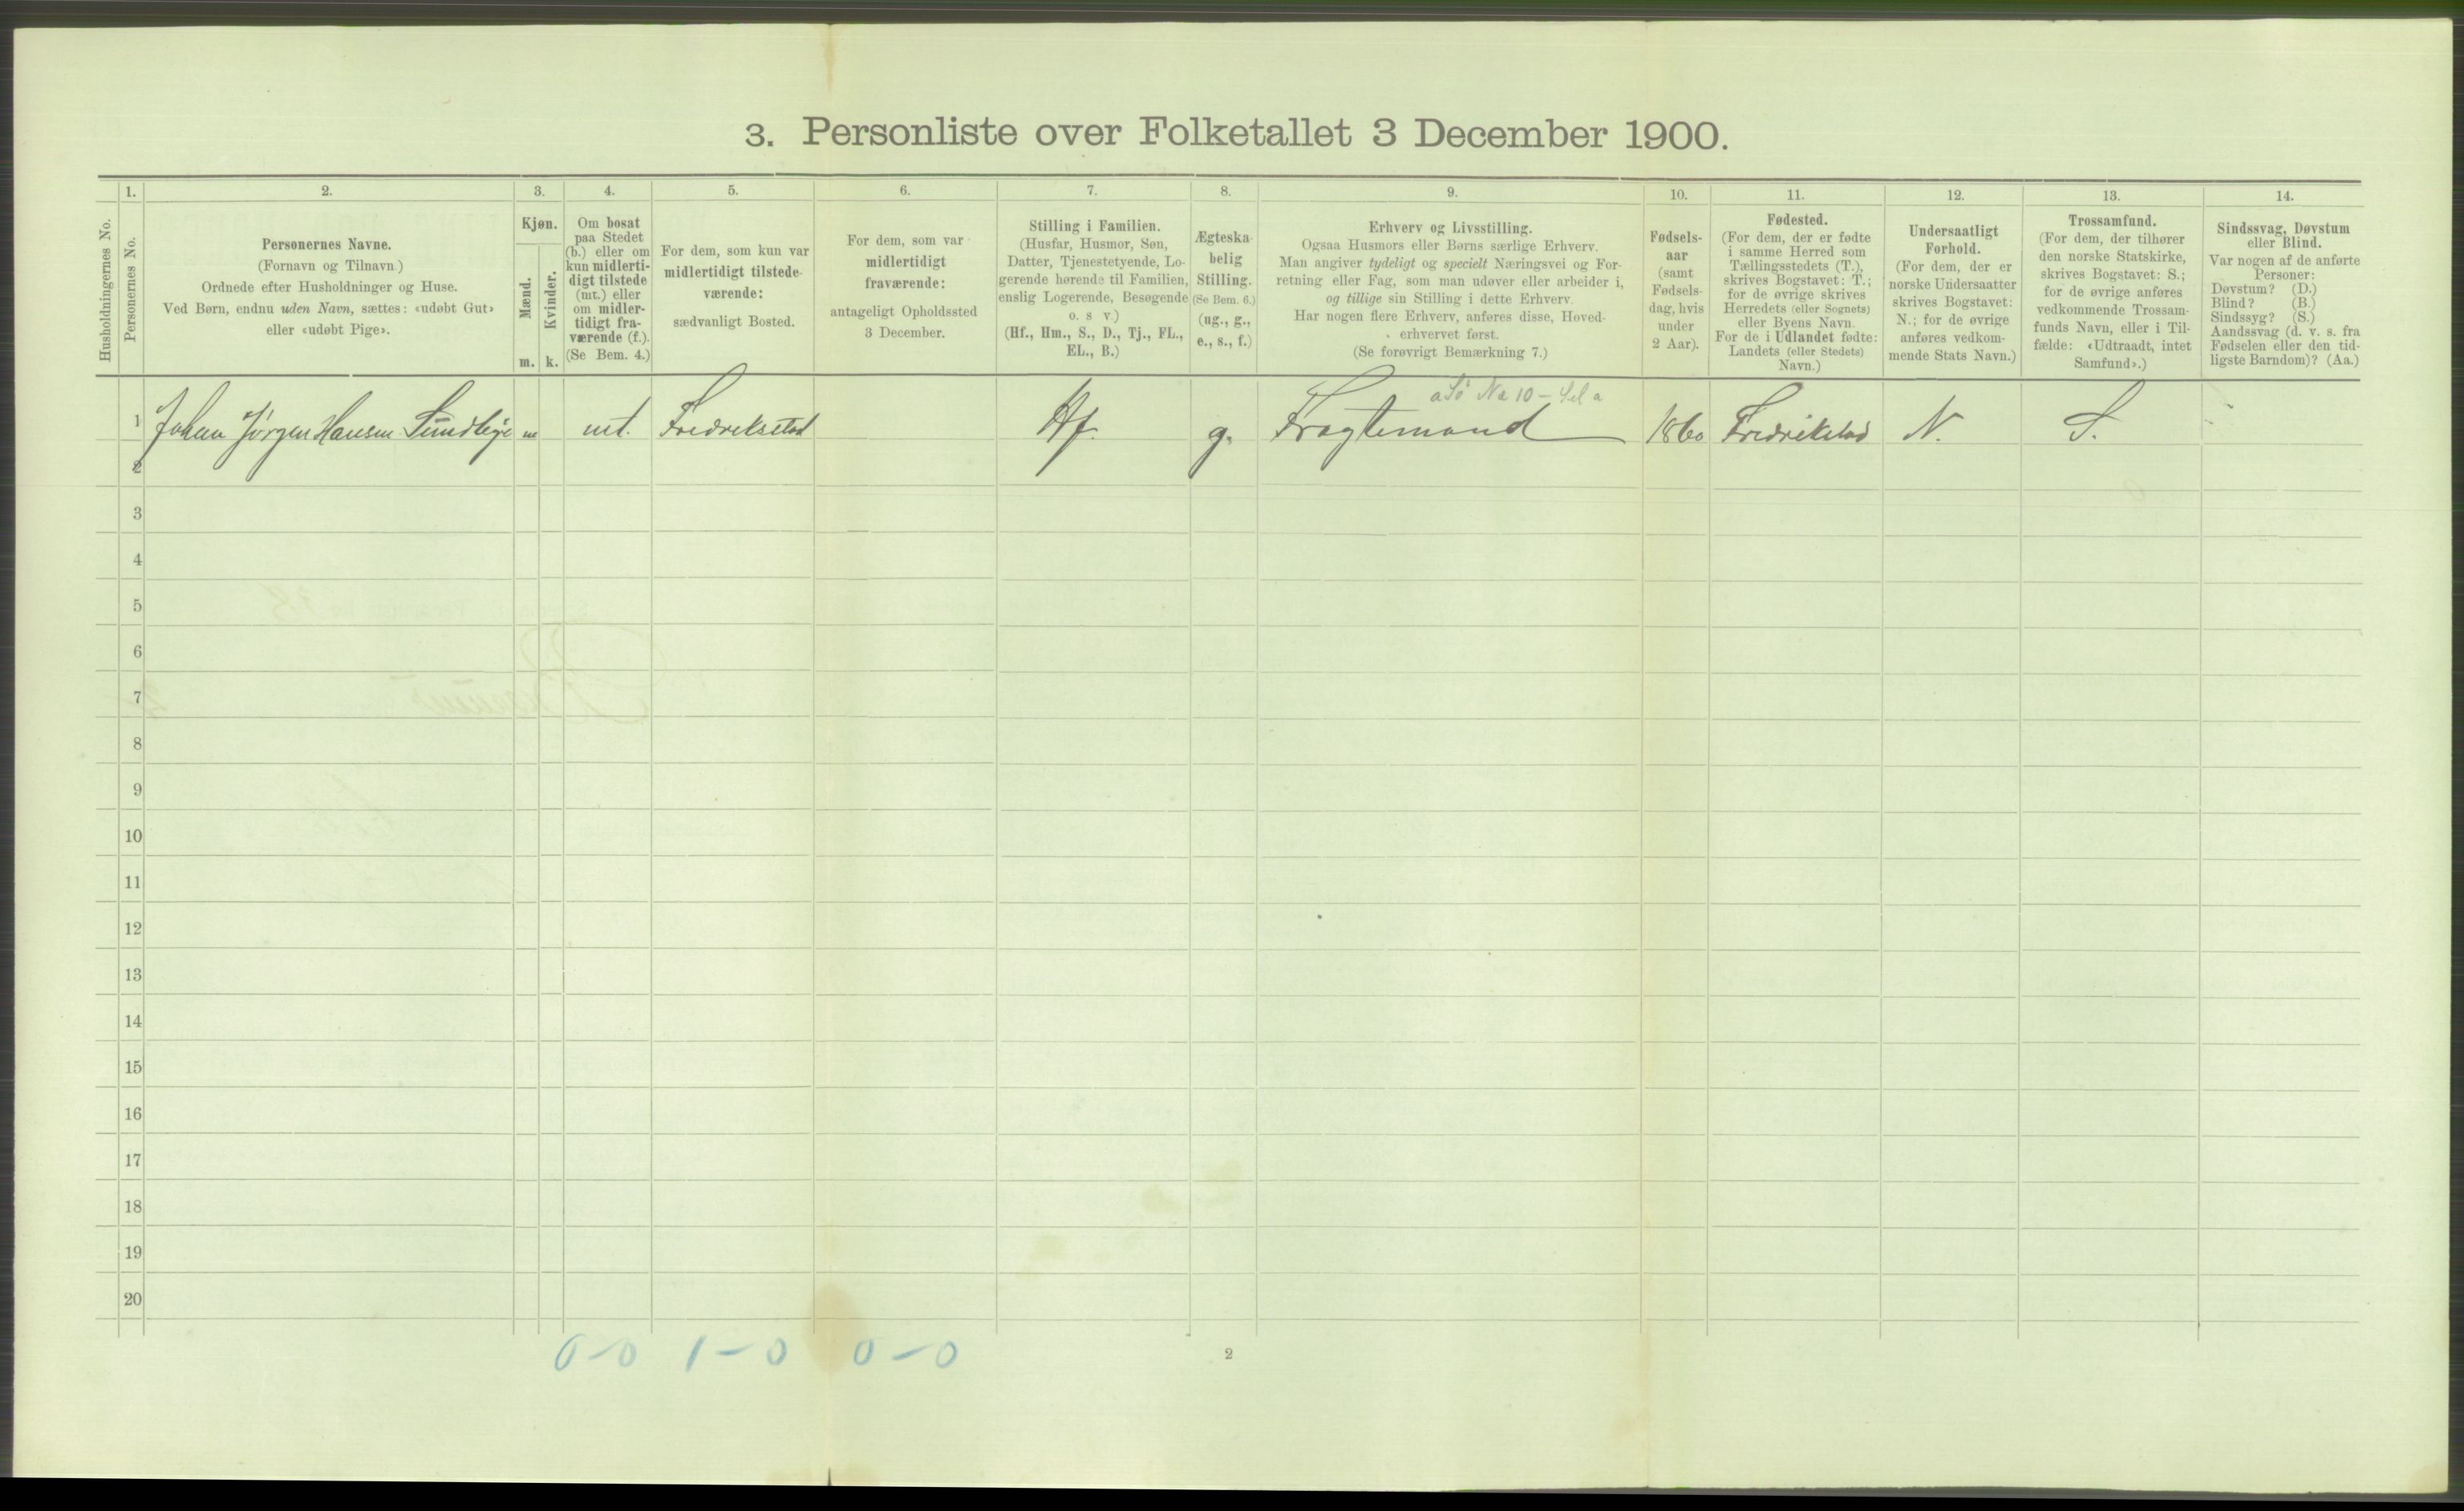 3. Personliste over Folketallet 3 December 1900.
Husholdningernes No.
1.
Personernes No.
2.
Personernes Navne.
(Fornavn og Tilnavn)
Ordnede efter Husholdninger og Huse.
Ved Børn, endnu uden Navn, sættes: «udøbt Gut»
eller «udøbt Pige».
3.
Kjøn.
Mænd.
Kvinder.
m. k.
4.
Om bosat
paa Stedet
(b.) eller om
kun midlerti-
digt tilstede
(mt.) eller
om midler-
tidigt fra-
værende (f.).
(Se Bem. 4.)
5.
For dem, som kun var
midlertidigt tilstede-
værende:
sædvanligt Bosted.
6.
For dem, som var
midlertidigt
fraværende:
antageligt Opholdssted
3 December.
7.
Stilling i Familien.
(Husfar, Husmor, Søn,
Datter, Tjenestetyende, Lo-
gerende hørende til Familien,
enslig Logerende, Besøgende
o. s v.)
(Hf., Hm., S., D., Tj., FL.,
EL., B.)
8.
Ægteska-
belig
Stilling.
(Se Bem. 6.)
(ug., g.,
e., s., f.)
9.
Erhverv og Livsstilling.
Ogsaa Husmors eller Børns særlige Erhverv.
Man angiver tydeligt og specielt Næringsvei og For-
retning eller Fag, som man udøver eller arbeider i,
og tillige sin Stilling i dette Erhverv.
Har nogen flere Erhverv, anføres disse, Hoved-
erhvervet først.
(Se forøvrigt Bemærkning 7.)
10.
Fødsels-
aar
(samt
Fødsels-
dag, hvis
under
2 Aar).
11.
Fødested.
(For dem, der er fødte
i samme Herred som
Tællingsstedets (T.),
skrives Bogstavet: T.;
for de øvrige skrives
Herredets (eller Sognets)
eller Byens Navn.
For de i Udlandet fødte:
Landets (eller Stedets)
Navn.)
12.
Undersaatligt
Forhold.
(For dem, der er
norske Undersaatter
skrives Bogstavet:
N.; for de øvrige
anføres vedkom-
mende Stats Navn.)
13.
Trossamfund.
(For dem, der tilhører
den norske Statskirke,
skrives Bogstavet: S.;
for de øvrige anføres
vedkommende Trossam-
funds Navn, eller i Til-
fælde: «Udtraadt, intet
Samfund».)
14.
Sindssvag, Døvstum
eller Blind.
Var nogen af de anførte
Personer:
Døvstum? (D.)
Blind? (B.)
Sindssyg? (S.)
Aandssvag (d. v. s. fra
Fødselen eller den tid-
ligste Barndom)? (Aa.)
1 Johan Jørgen Hansen m mt. Fredrikstad Hf. g. Fragtemand 1860 Fredrikstad N. S.
2
3
4
5
6
7
8
9
10
11
12
13
14
15
16
17
18
19
20
0-0 1-0 0-0
2